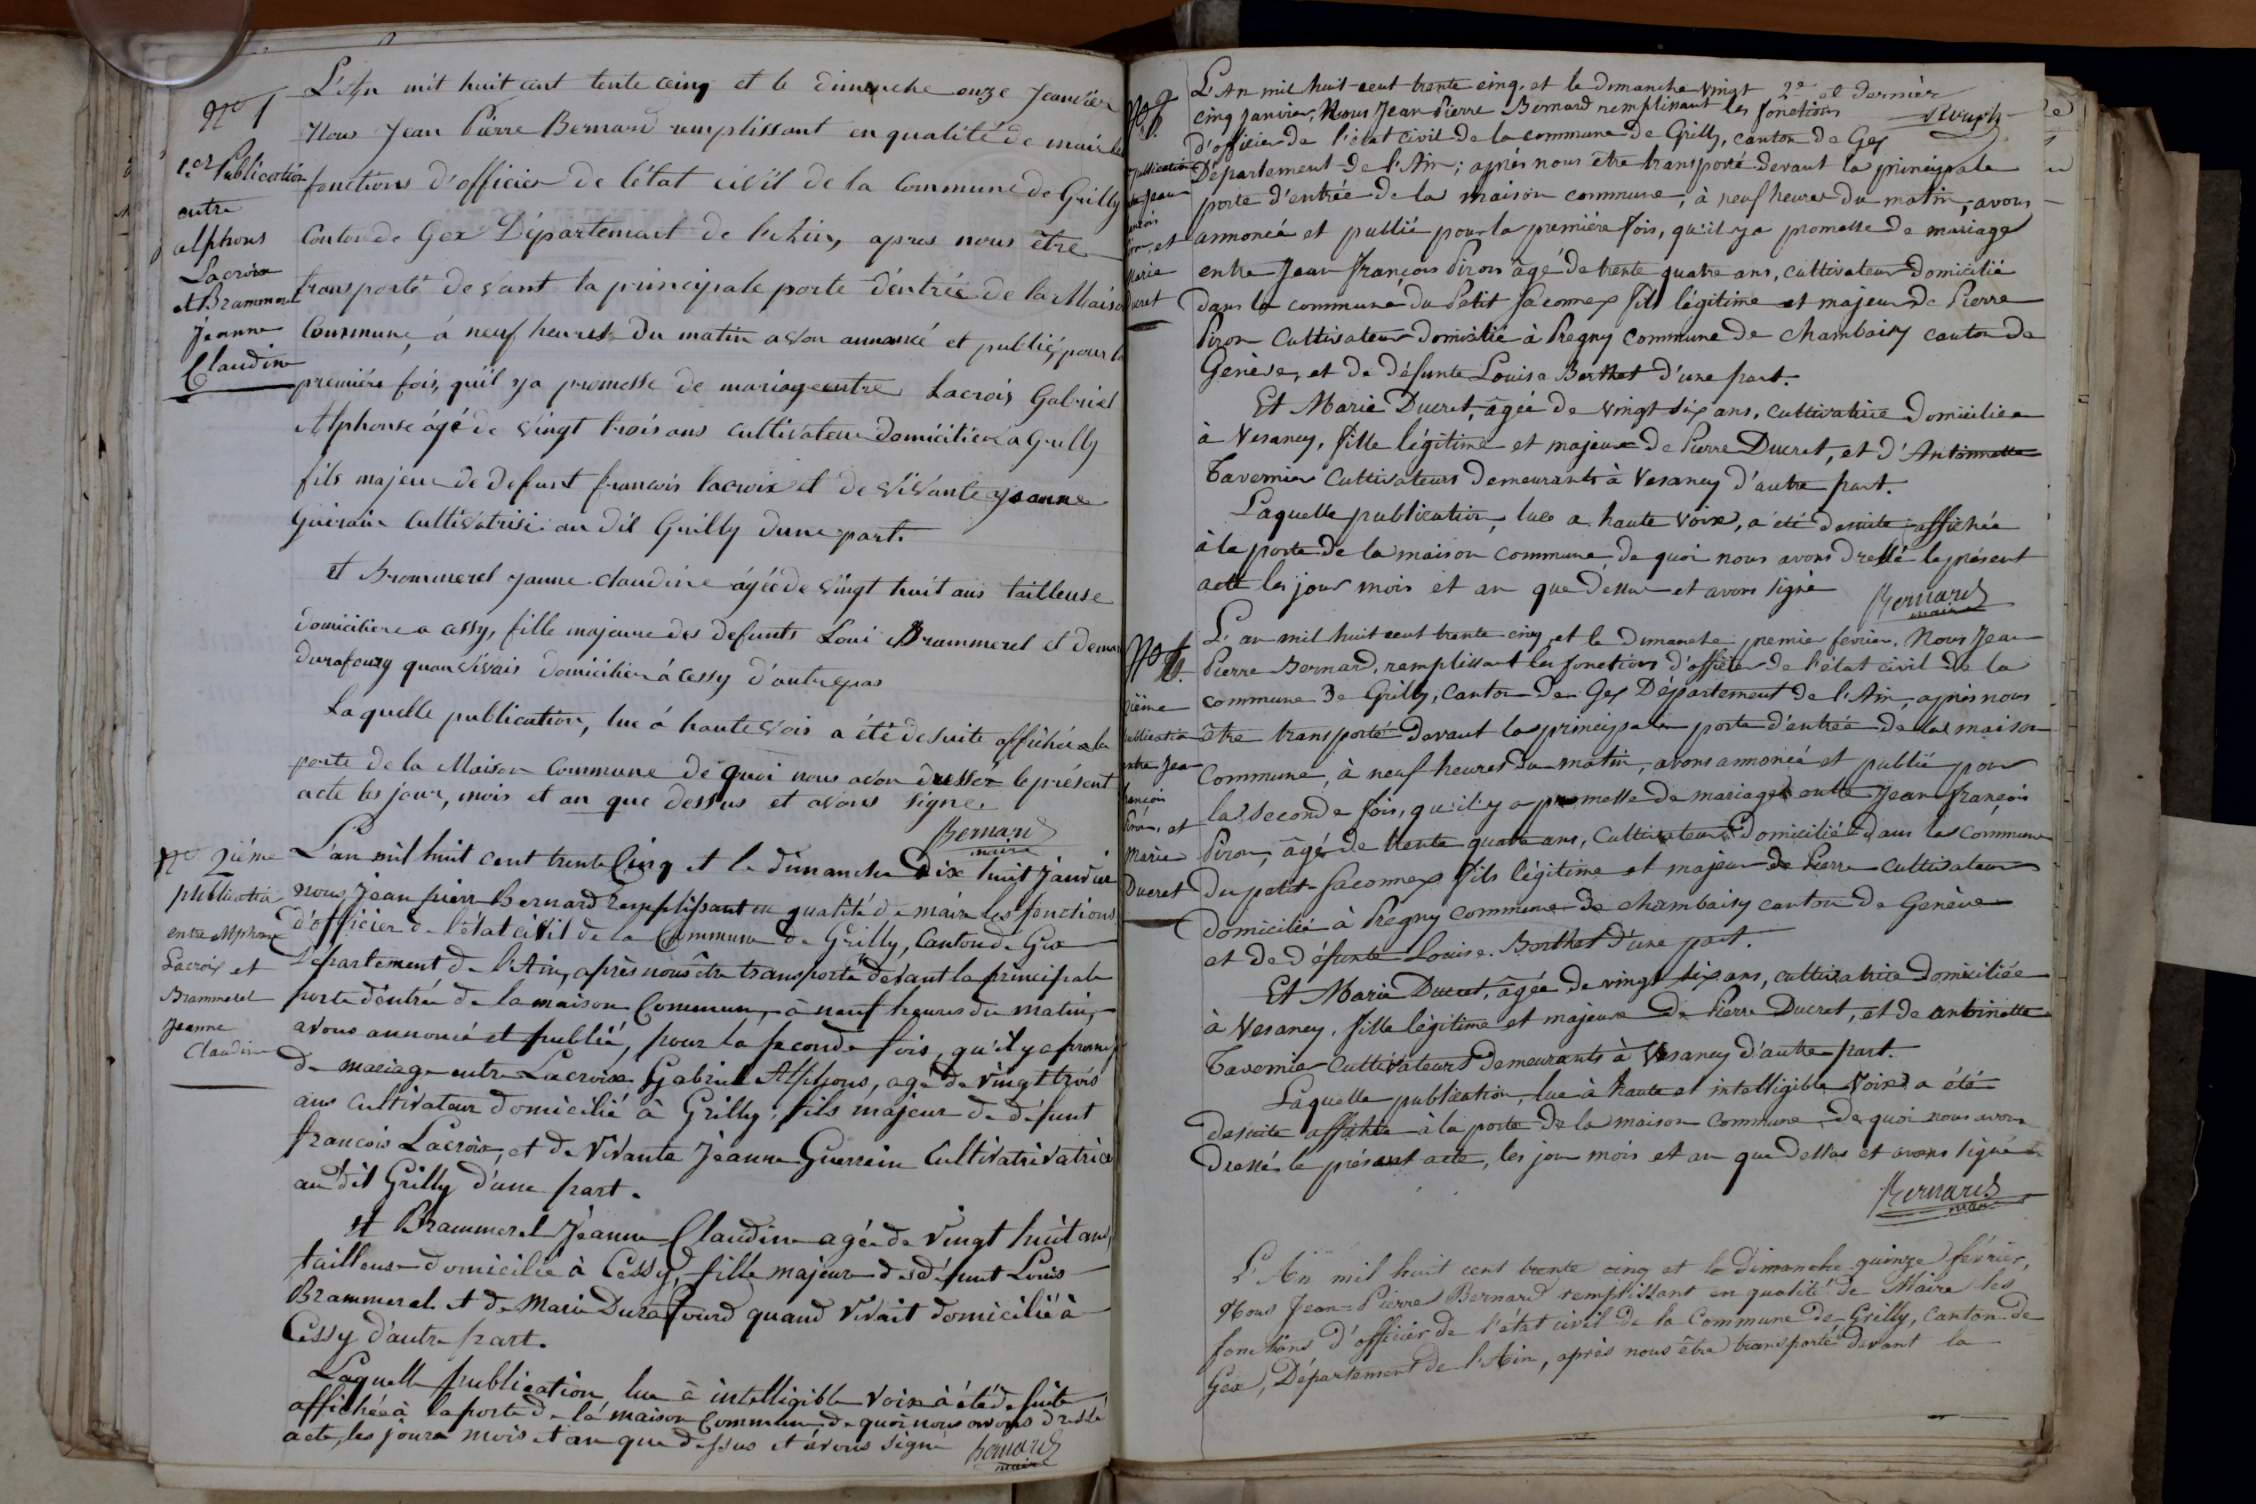 N° 1
1ère Publication
entre
alphons
Lacroix
et Brammerel
Jeanne
Claudine
L'An mil huit cent tente cinq et le dimanche onze Jeanvier
Nous Jean Pierre Bernard remplissant en qualité de maire les
fonctions d'officier de l'état civil de la Commune de Grilly
Canton de Gex Département de l'Ain, apres nous être
transporté devant la principale porte d'entrée de la Maison
Commune, à neuf heures du matin avon annoncé et publié, pour la
première fois, qu'il y a promesse de mariage entre Lacroix Gabriel
Alphonse âgé de vingt trois ans cultivateur domicilier a Grilly
fils majeur de defunt francois lacroix et de vivante jeanne
Guerain Cultivatrise au dit Grilly dune part.
et Brommerel jeanne claudine âgée de vingt huit ans tailleuse
domiciliere a cessy, fille majeure des defunts Loui Brammerel et de
durafourg quan vivais domicilier á cessy d'autre pas
Laquelle publication, lue á haute vois a été de suite affichée a la
porte de la Maison Commune de quoi nous avon dresser le présent
acte les jour, mois et an que dessus et avons signe
Bernard
maire
N° 2iéme
publication
entre Alphonse
Lacroix et
Brammerel
Jeanne
Claudine
L'an mil huit cent trente Cinq et le dimanche Dix huit Janvier
nous Jean pierre Bernard Remplissant en qualité de maire les fonctions
d'officier de l'état civil de la Commune de Grilly, Canton de Gex
Département de l'Ain, après nous être transporté devant la principale
porte d'entrée de la maison Commune, à neuf heures du matin,
avons annoncé et publié, pour la seconde fois, qu'il y a promesse
de mariage entre Lacroix Gabriel Alphons, agé de vingt trois
ans Cultivateur domicilié à Grilly, fils majeur de défunt
francois Lacroix, et de Vivante Jeanne Guerrein Cultivatrivatrice
au dit Grilly d'une part.
et Brammerel Jeanne Claudine agée de vingt huit ans,
tailleuse domicilie à Cessy, fille majeure de défunt Louis
Brammerel et de Marie Durafourd quand vivait domicilié à
Cessy d'autre part.
Laquelle publication lue à intelligible voix à été de suite
affichée à la porte de la maison Commune de quoi nous avons dressé
acte, les jours mois et an que dessus et avons signé
Bernard
maire
2e et dernier
publication
Jean
et
Marie
Ducret
L'An mil huit cent trente cinq, et le dimanche vingt
cinq janvier, Nous Jean Pierre Bernard remplissant les fonctions
d'officier de l'état civil de la commune de Grilly, canton de Gex
Département de l'Ain; après nous être transporté devant la principale
porte d'entrée de la maison commune, à neuf heures du matin, avons
annoncé et publié pour la première fois, qu'il y a promesse de mariage
entre Jean François Piron âgé de trente quatre ans, cultivateur domicilié
dans la commune du Petit Saconnex fils légitime et majeur de Pierre
Piron Cultivateur domicilié à Pregny commune de Chambaisy canton de
Genève, et de défunte Louise Berthet d'une part.
Et Marie Ducret, âgée de vingt six ans, cultivatrice domiciliée
à Vesancy, fille légitime et majeure de Pierre Ducret, et d'Antoinette
Tavernier Cultivateurs demeurants à Vesancy d'autre part.
Laquelle publication, lue a haute voix, a été desuite affichée
à la porte de la maison commune de quoi nous avons dressé le présent
acte les jour mois et an que dessus et avons signé
Bernard
maire
2iéme
publication
entre Jean
françois
Piron, et
Marie
Ducret
L'an mil huit cent trente cinq, et le dimanche premier fevrier. Nous Jean
Pierre Bernard, remplissant les fonctions d'officier de l'état civil de la
commune de Grilly, Canton de Gex Département de l'Ain, après nous
être transporté devant la principale porte d'entrée de la maison
Commune, à neuf heures du matin, avons annoncé et publié pour
la seconde fois, qu'il y a promesse de mariage entre Jean françois
Piron, âgé de trente quatre ans, cultivateur domicilié dans la commune
du petit Saconnex fils légitime et majeur de Pierre cultivateur
domicilié à Pregny commune de Chambaisy canton de Genève
et de défunte Louise Berthet d'une part.
Et Marie Ducret, âgée de vingt six ans, cultivatrice domiciliée
à Vesancy, fille légitime et majeure de Pierre Ducret, et de antoinette
Tavernier Cultivateurs demeurants à Vesancy d'autre part.
Laquelle publication, lue à haute et intelligible voix a été
desuite affichée à la porte de la maison commune de quoi nous avons
dressé le présent acte, les jour mois et an que dessus et avons signé
Bernard
maire
L'An mil huit cent trente cinq et le dimanche quinze février,
Nous Jean-Pierre Bernard remplissant en qualité de Maire les
fonctions d'officier de l'état civil de la Commune de Grilly, Canton de
Gex, Département de l'Ain, après nous être transporté devant la